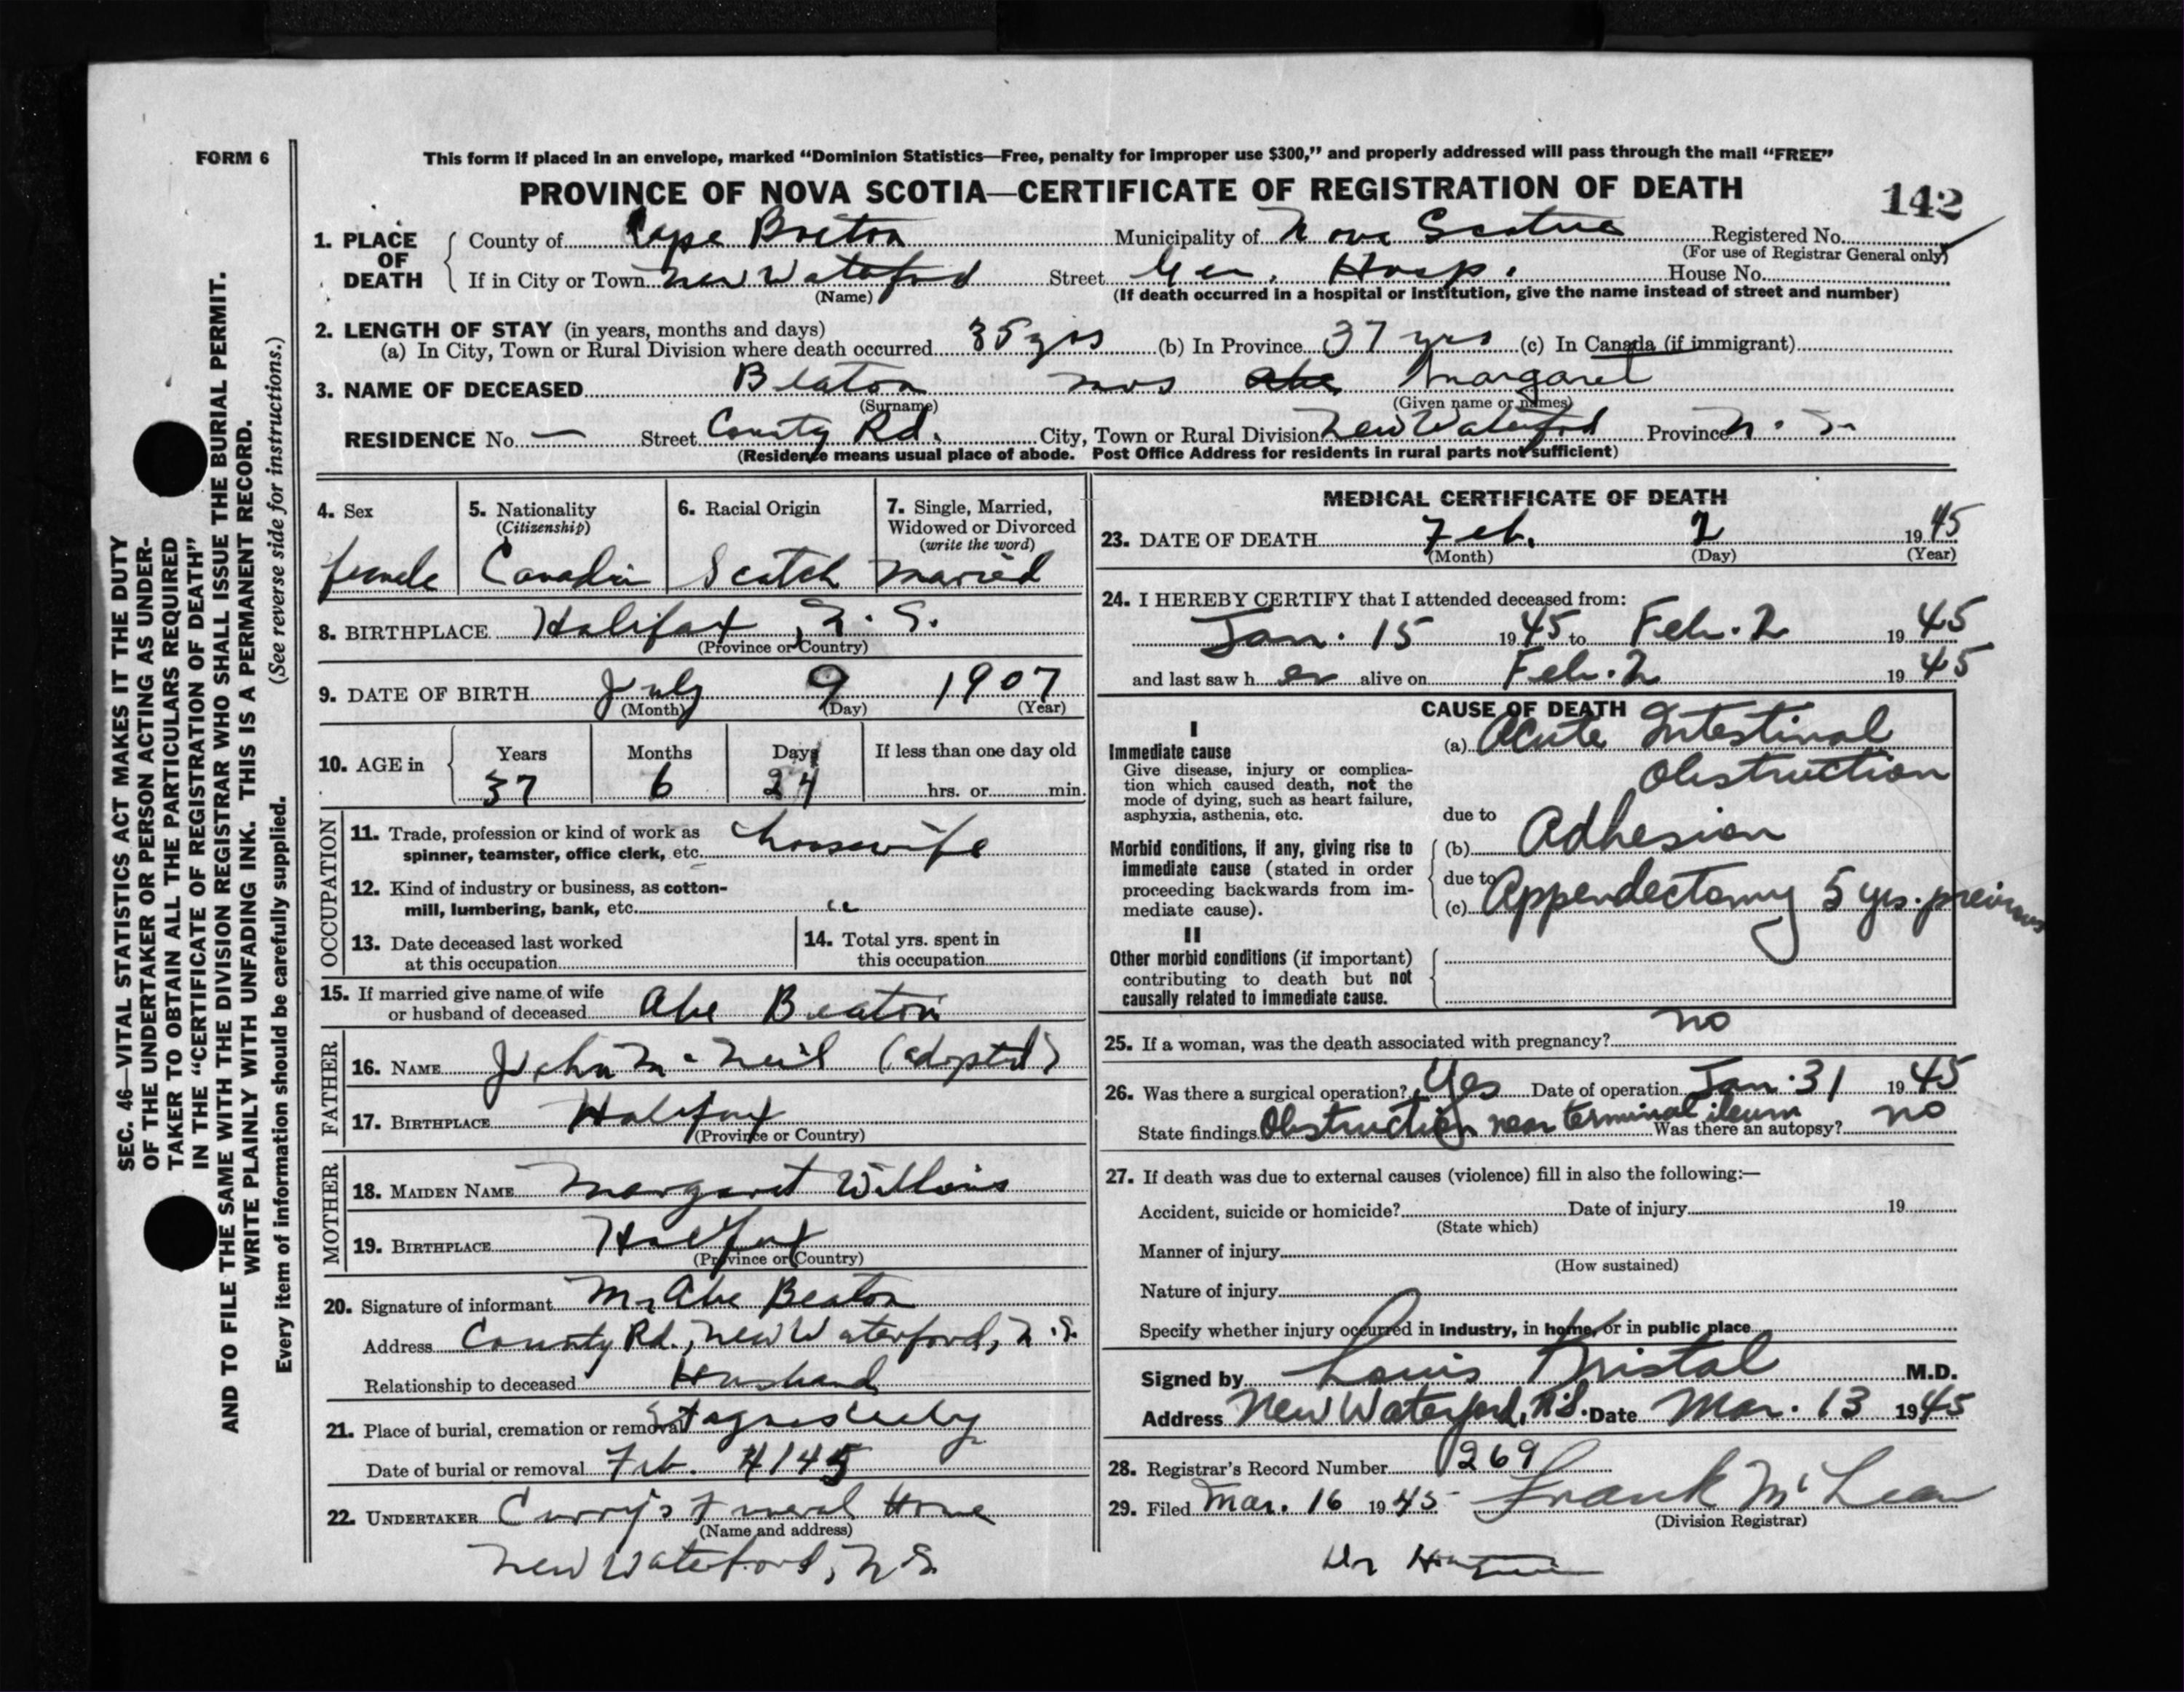 FORM 6
This form if placed in an envelope, marked “Dominion Statistics—Free, penalty for improper use $300,” and properly addressed will pass through the mail “FREE”
PROVINCE OF NOVA SCOTIA—CERTIFICATE OF REGISTRATION OF DEATH
142
1. PLACE OF DEATH
County of Cape Breton Municipality of Nova Scotia Registered No.
(For use of Registrar General only)
If in City or Town New Waterford Street Gen. Hosp. House No.
(Name) (If death occurred in a hospital or institution, give the name instead of street and number)
2. LENGTH OF STAY (in years, months and days)
(a) In City, Town or Rural Division where death occurred 35 yrs (b) In Province 37 yrs (c) In Canada (if immigrant)
3. NAME OF DECEASED Beaton Mrs Abe Margaret
(Surname) (Given name or names)
RESIDENCE No. — Street County Rd. City, Town or Rural Division New Waterford Province N. S.
(Residence means usual place of abode. Post Office Address for residents in rural parts not sufficient)
4. Sex 5. Nationality 6. Racial Origin 7. Single, Married,
(Citizenship) Widowed or Divorced
(write the word)
female Canadian Scotch married
8. BIRTHPLACE Halifax, N. S.
(Province or Country)
9. DATE OF BIRTH July 9 1907
(Month) (Day) (Year)
10. AGE in Years Months Days If less than one day old
37 6 24 hrs. or min.
OCCUPATION
11. Trade, profession or kind of work as
spinner, teamster, office clerk, etc. housewife
12. Kind of industry or business, as cotton-
mill, lumbering, bank, etc. "
13. Date deceased last worked
at this occupation
14. Total yrs. spent in
this occupation
15. If married give name of wife
or husband of deceased Abe Beaton
FATHER
16. NAME John McNeil (adopted)
17. BIRTHPLACE Halifax
(Province or Country)
MOTHER
18. MAIDEN NAME Margaret Williams
19. BIRTHPLACE Halifax
(Province or Country)
20. Signature of informant Mr Abe Beaton
Address County Rd., New Waterford, N.S.
Relationship to deceased Husband
21. Place of burial, cremation or removal
Date of burial or removal Feb. 4/45
22. UNDERTAKER Curry's Funeral Home
(Name and address)
New Waterford, N.S.
MEDICAL CERTIFICATE OF DEATH
23. DATE OF DEATH Feb. 2 1945
(Month) (Day) (Year)
24. I HEREBY CERTIFY that I attended deceased from:
Jan. 15 1945 to Feb. 2 1945
and last saw her alive on Feb. 2 1945
CAUSE OF DEATH
I
Immediate cause
Give disease, injury or complica-
tion which caused death, not the
mode of dying, such as heart failure,
asphyxia, asthenia, etc.
(a) Acute Intestinal
Obstruction
due to
Morbid conditions, if any, giving rise to
immediate cause (stated in order
proceeding backwards from im-
mediate cause).
(b) Adhesion
due to
(c) Appendectomy 5 yrs. previous
II
Other morbid conditions (if important)
contributing to death but not
causally related to immediate cause.
25. If a woman, was the death associated with pregnancy? no
26. Was there a surgical operation? Yes Date of operation Jan. 31 1945
State findings Obstruction near terminal ileum Was there an autopsy? no
27. If death was due to external causes (violence) fill in also the following:—
Accident, suicide or homicide? Date of injury 19
(State which)
Manner of injury
(How sustained)
Nature of injury
Specify whether injury occurred in industry, in home, or in public place
Signed by Louis Kristal M.D.
Address New Waterford, N.S. Date Mar. 13 1945
28. Registrar's Record Number 269
29. Filed Mar. 16 1945 Frank McLean
(Division Registrar)
SEC. 46—VITAL STATISTICS ACT MAKES IT THE DUTY
OF THE UNDERTAKER OR PERSON ACTING AS UNDER-
TAKER TO OBTAIN ALL THE PARTICULARS REQUIRED
IN THE “CERTIFICATE OF REGISTRATION OF DEATH”
AND TO FILE THE SAME WITH THE DIVISION REGISTRAR WHO SHALL ISSUE THE BURIAL PERMIT.
WRITE PLAINLY WITH UNFADING INK. THIS IS A PERMANENT RECORD.
Every item of information should be carefully supplied. (See reverse side for instructions.)